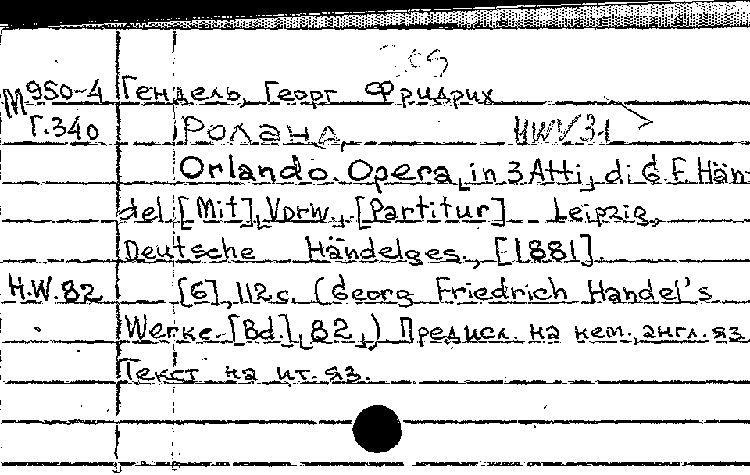 M950-4 Гендель, Георг Фридрих
Г.340 Роланд, HWV31
Orlando. Opera in 3 Atti di G F. Hän-
del [Mit] Vorw. [Partitur] Leipzig,
Deutsche Händelges., [1881].
H.W.82 [6], 112 с. (Georg Friedrich Handel's
Werke. [Bd.] 82.) Предисл. на нем., англ. яз
Текст на ит. яз.